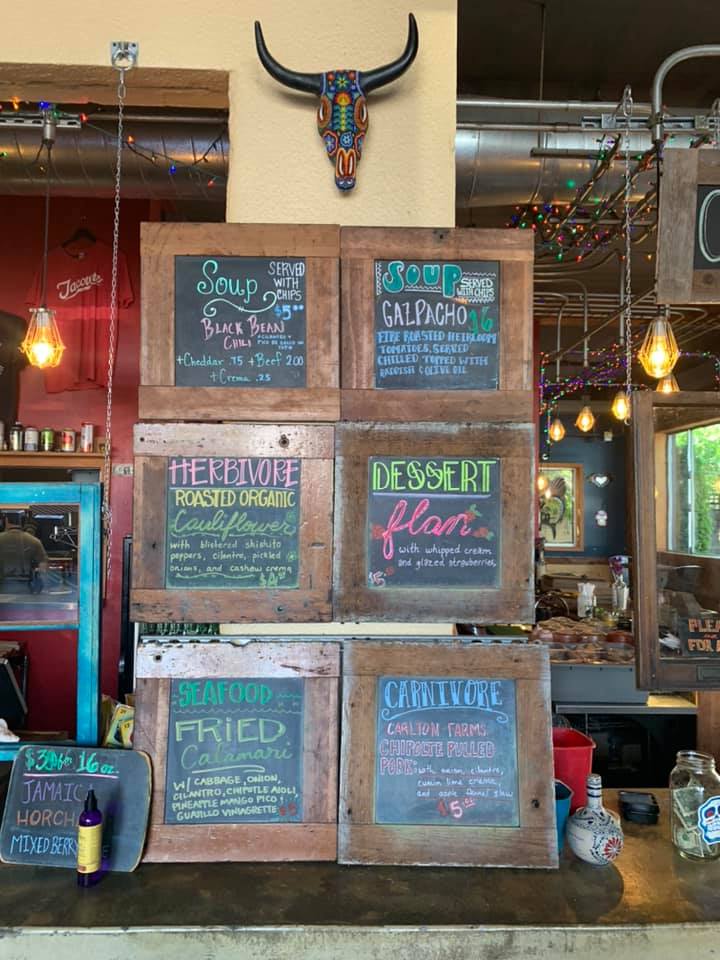 Soup
SERVED
WITH
CHIPS
$5
BLACK BEAN
CHILI
+Cheddar .75 +Beef 2.00
+Crema .25
SOUP
SERVED
WITH CHIPS
GAZPACHO
FIRE ROASTED HEIRLOOM
TOMATOES, SERVED
CHILLED TOPPED WITH
RADDISH & OLIVE OIL
HERBIVORE
ROASTED ORGANIC
Cauliflower
with blistered shishito
peppers, cilantro, pickled
onions, and cashew crema
DESSERT
flan
with whipped cream
and glazed strawberries,
SEAFOOD
FRIED
Calamari
W/ CABBAGE, ONION,
CILANTRO, CHIPOTLE AIOLI,
PINEAPPLE MANGO PICO
GUAJILLO VINIAGRETTE
CARNIVORE
CARLTON FARMS
CHIPOLTE PULLED
PORK: with onion, cilantro,
cumin lime crema,
and apple fennel slaw
$5
16 oz.
JAMAIC
HORCH
MIXED BERR
PLEA
FOR A